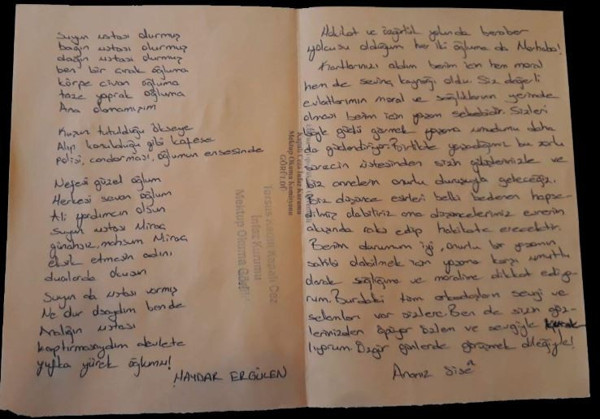 Suyun ustası olurmuş
bağın ustası olurmuş
dağın ustası olurmuş
ben bir çırak oğluma
körpe civan oğluma
taze yaprak oğluma
Ana olamamışım
Kuşun tutulduğu ökseye
Alıp koyulduğu gibi kafese
polisi, candarması, oğlumun ensesinde
Nefesi güzel oğlum
Herkesi seven oğlum
Ali yardımcın olsun
Suyun ustası Miraç
günahsız, mahsum Miraç
eksik etmesin adını
dualarda okusun
Suyun da ustası varmış
Ne olur olsaydım ben de
Analığın ustası
kaptırmasaydım devlete
yufka yürek oğlumu!
HAYDAR ERGÜLEN
Hakikat ve özgürlük yolunda beraber
yolcusu olduğum her iki oğluma da Merhaba!
Kartlarınızı aldım benim için hem moral
hem de sevinç kaynağı oldu. Siz değerli
evlatlarımın moral ve sağlıklarının yerinde
olması benim için yaşam sebebidir. Sizleri
böyle güçlü görmek yaşama umudumu daha
da güçlendiriyor. Birlikte yaşadığımız bu zorlu
sürecin üstesinden sizin gülüşlerinizle ve
biz annelerin onurlu duruşuyla geleceğiz.
Biz düşünce esirleri belki bedenen hapse-
dilmiş olabiliriz ama düşüncelerimiz evrenin
akışında raks edip hakikate erecektir.
Benim durumum iyi, onurlu bir yaşamın
sahibi olabilmek için yaşama karşı umutlu
olarak sağlığıma ve moralime dikkat ediyo-
rum. Burdaki tüm arkadaşların sevgi ve
selamları var sizlere. Ben de sizin göz-
lerinizden öpüyor özlem ve sevgiyle kucak-
lıyorum. Özgür günlerde görüşmek dileğiyle!
Ananız Sise
Mektup Okuma Komisyonu